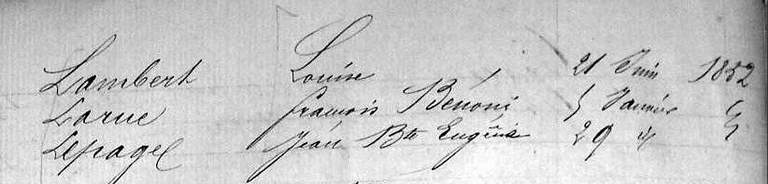 Lambert Louise 21 Juin 1852
Larue francois Bénoni 5 Janvier
Lepage Jean Bte Eugène 29